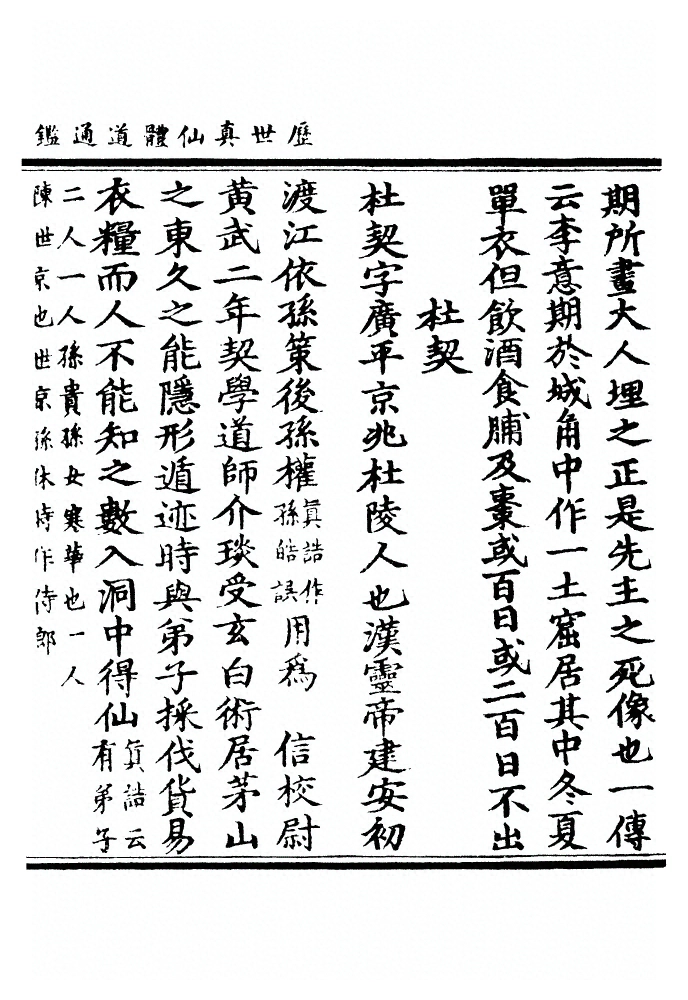 歷世真仙體道通鑑
期所畫大人埋之正是先主之死像也一傳
云李意期於城角中作一土窟居其中冬夏
單衣但飲酒食脯及棗或百日或二百日不出
杜契
杜契字廣平京兆杜陵人也漢靈帝建安初
渡江依孫策後孫權真誥作孫皓誤用為 信校尉
黃武二年契學道師介琰受玄白術居茅山
之東久之能隱形遁迹時與弟子採伐貨易
衣糧而人不能知之數入洞中得仙真誥云有弟子
二人一人孫賁孫女寒華也一人
陳世京也世京孫休時作侍郎